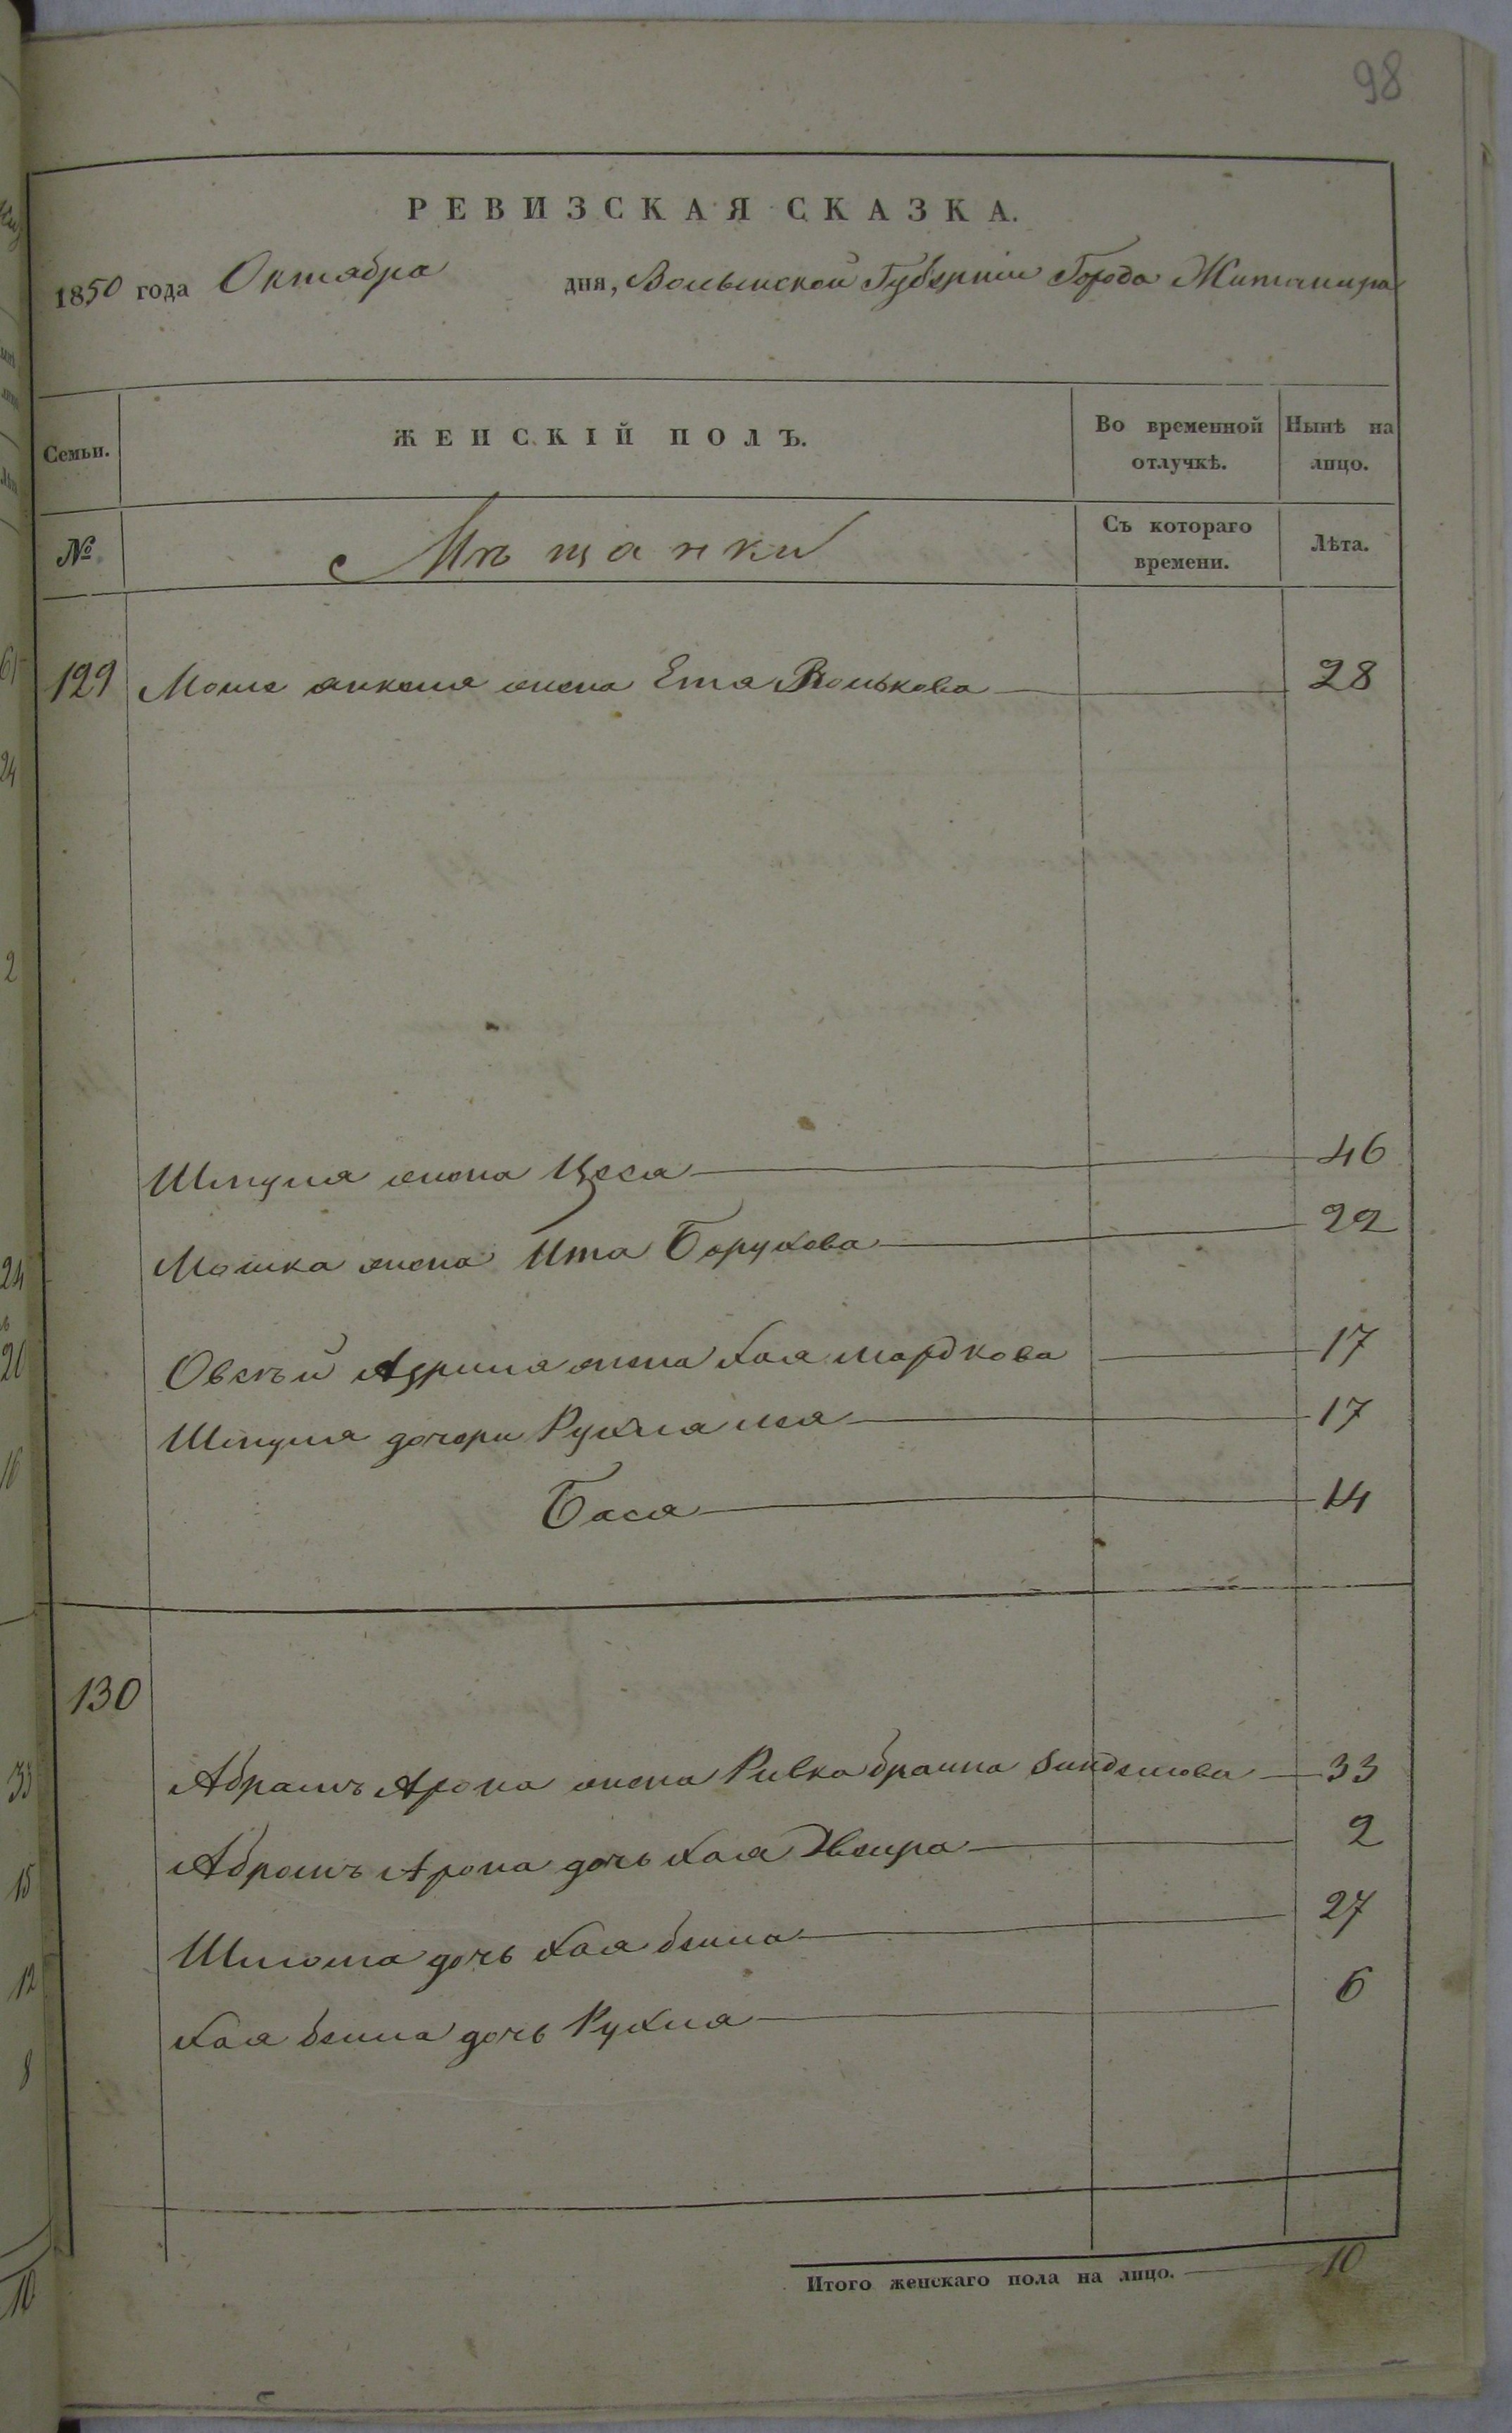 98
РЕВИЗСКАЯ СКАЗКА.
1850 года Октября дня, Волынской Губерніи Города Житомира
Семьи. ЖЕНСКІЙ ПОЛЪ. Во временной отлучкѣ. Нынѣ на лицо.
№ Мѣщанки Съ котораго времени. Лѣта.
129 Моше янкеля жена Ета Волькова 28
Шмуля жена Цеся 46
Мошка жена Ита Борухова 22
Овсѣй жена Хая Мордкова 17
Шмуля дочери Рухля Лея 17
Бася 14
130
Абрамъ Арона жена Ривка 33
Абрамъ Арона дочь Хая Двейра 2
Шлиома дочь Хая бейла 27
Хая бейла дочь Рухля 6
Итого женскаго пола на лицо. 10